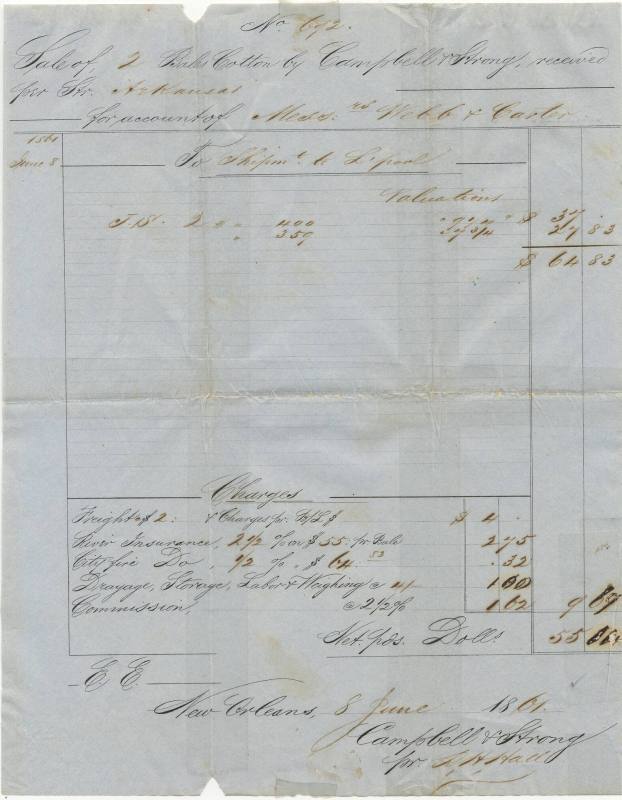 No 692.
Sale of 2 Bales Cotton by Campbell & Strong, received
per Str. Arkansas
for account of Mess.rs Webb & Carter
1861
June 8
To Shipm.t to L'pool
Valuations
2 " " 400 " 9 1/4 " $ 37 .
" 359 " 7 3/4 27 83
$ 64 83
Charges
Freight of 2: & Charges pr. B/L $ $ 4 .
River Insurance, 2 1/2 % on $ 55. pr Bale 2 75
City fire Do, 1/2 % " $ 64. 83 . 32
Drayage, Storage, Labor & Weighing @ 4/ 1 00
Commission, @ 2 1/2 % 1 62 9 69
Net. pds. Dolls. 55
E. E.
New Orleans, 8 June 1861.
Campbell & Strong
pr.